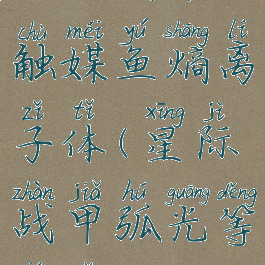 chù méi yú shāng lí
触媒鱼熵离
zǐ tǐ xīng jì
子体(星际
zhàn jiǎ hú guāng děng
战甲弧光等